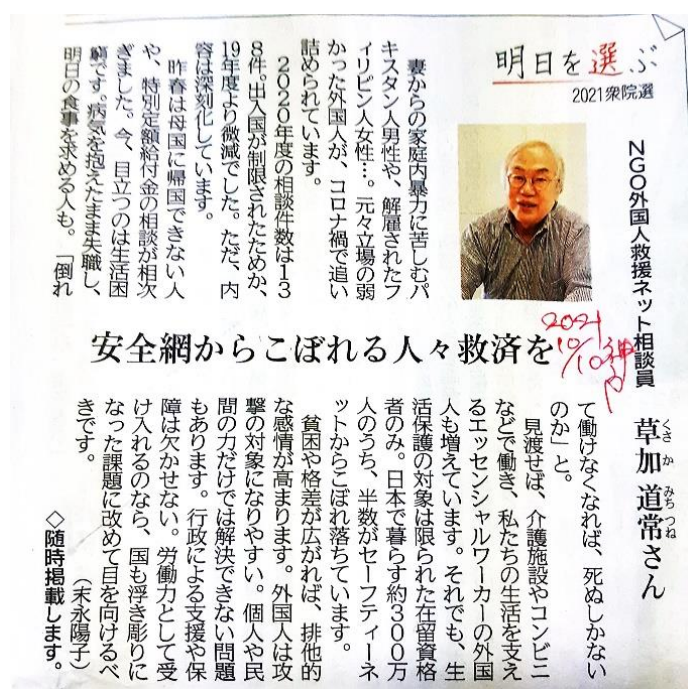 明日を選ぶ
2021衆院選
NGO外国人救援ネット相談員
くさか みちつね
草加 道常さん
2021
10/10
安全網からこぼれる人々救済を
妻からの家庭内暴力に苦しむパ
キスタン人男性や、解雇されたフ
ィリピン人女性…。元々立場の弱
かった外国人が、コロナ禍で追い
詰められています。
２０２０年度の相談件数は１３
８件。出入国が制限されたためか、
19年度より微減でした。ただ、内
容は深刻化しています。
昨春は母国に帰国できない人
や、特別定額給付金の相談が相次
ぎました。今、目立つのは生活困
窮です。病気を抱えたまま失職し、
明日の食事を求める人も。「倒れ
て働けなくなれば、死ぬしかない
のか」と。
見渡せば、介護施設やコンビニ
などで働き、私たちの生活を支え
るエッセンシャルワーカーの外国
人も増えています。それでも、生
活保護の対象は限られた在留資格
者のみ。日本で暮らす約３００万
人のうち、半数がセーフティーネ
ットからこぼれ落ちています。
貧困や格差が広がれば、排他的
な感情が高まります。外国人は攻
撃の対象になりやすい。個人や民
間の力だけでは解決できない問題
もあります。行政による支援や保
障は欠かせない。労働力として受
け入れるのなら、国も浮き彫りに
なった課題に改めて目を向けるべ
きです。
（末永陽子）
◇随時掲載します。